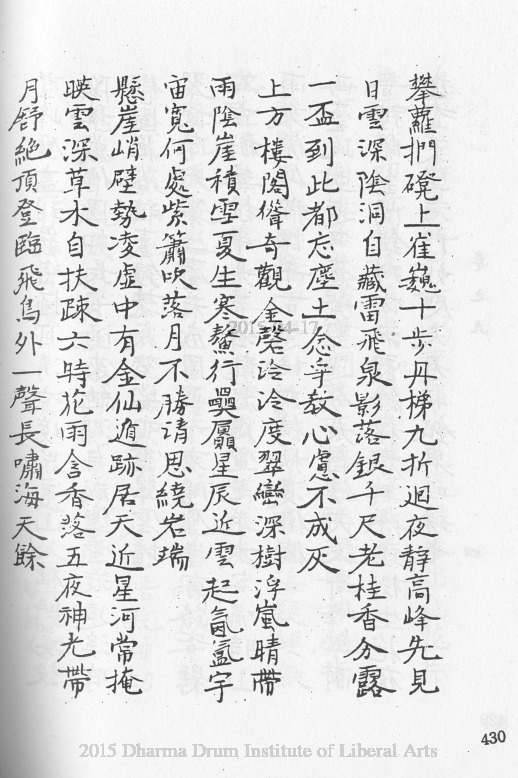 攀蘿捫磴上崔巍十步丹梯九折迴夜靜高峰先見
日雲深陰洞自藏雷飛泉影落銀千尺老桂香分露
一盃到此都忘塵土念乎教心慮不成灰
上方樓閣聳奇觀金磬泠泠度翠巒深樹浮嵐晴帶
雨陰崖積雪夏生寒鰲行贔屭星辰近雲起氤氳宇
宙寬何處紫簫吹落月不勝清思繞岩端
懸崖峭壁勢凌虛中有金仙遁跡居天近星河常掩
映雲深草木自扶疎六時花雨含香落五夜神光帶
月舒絶頂登臨飛鳥外一聲長嘯海天餘
2015-04-17
430
2015 Dharma Drum Institute of Liberal Arts